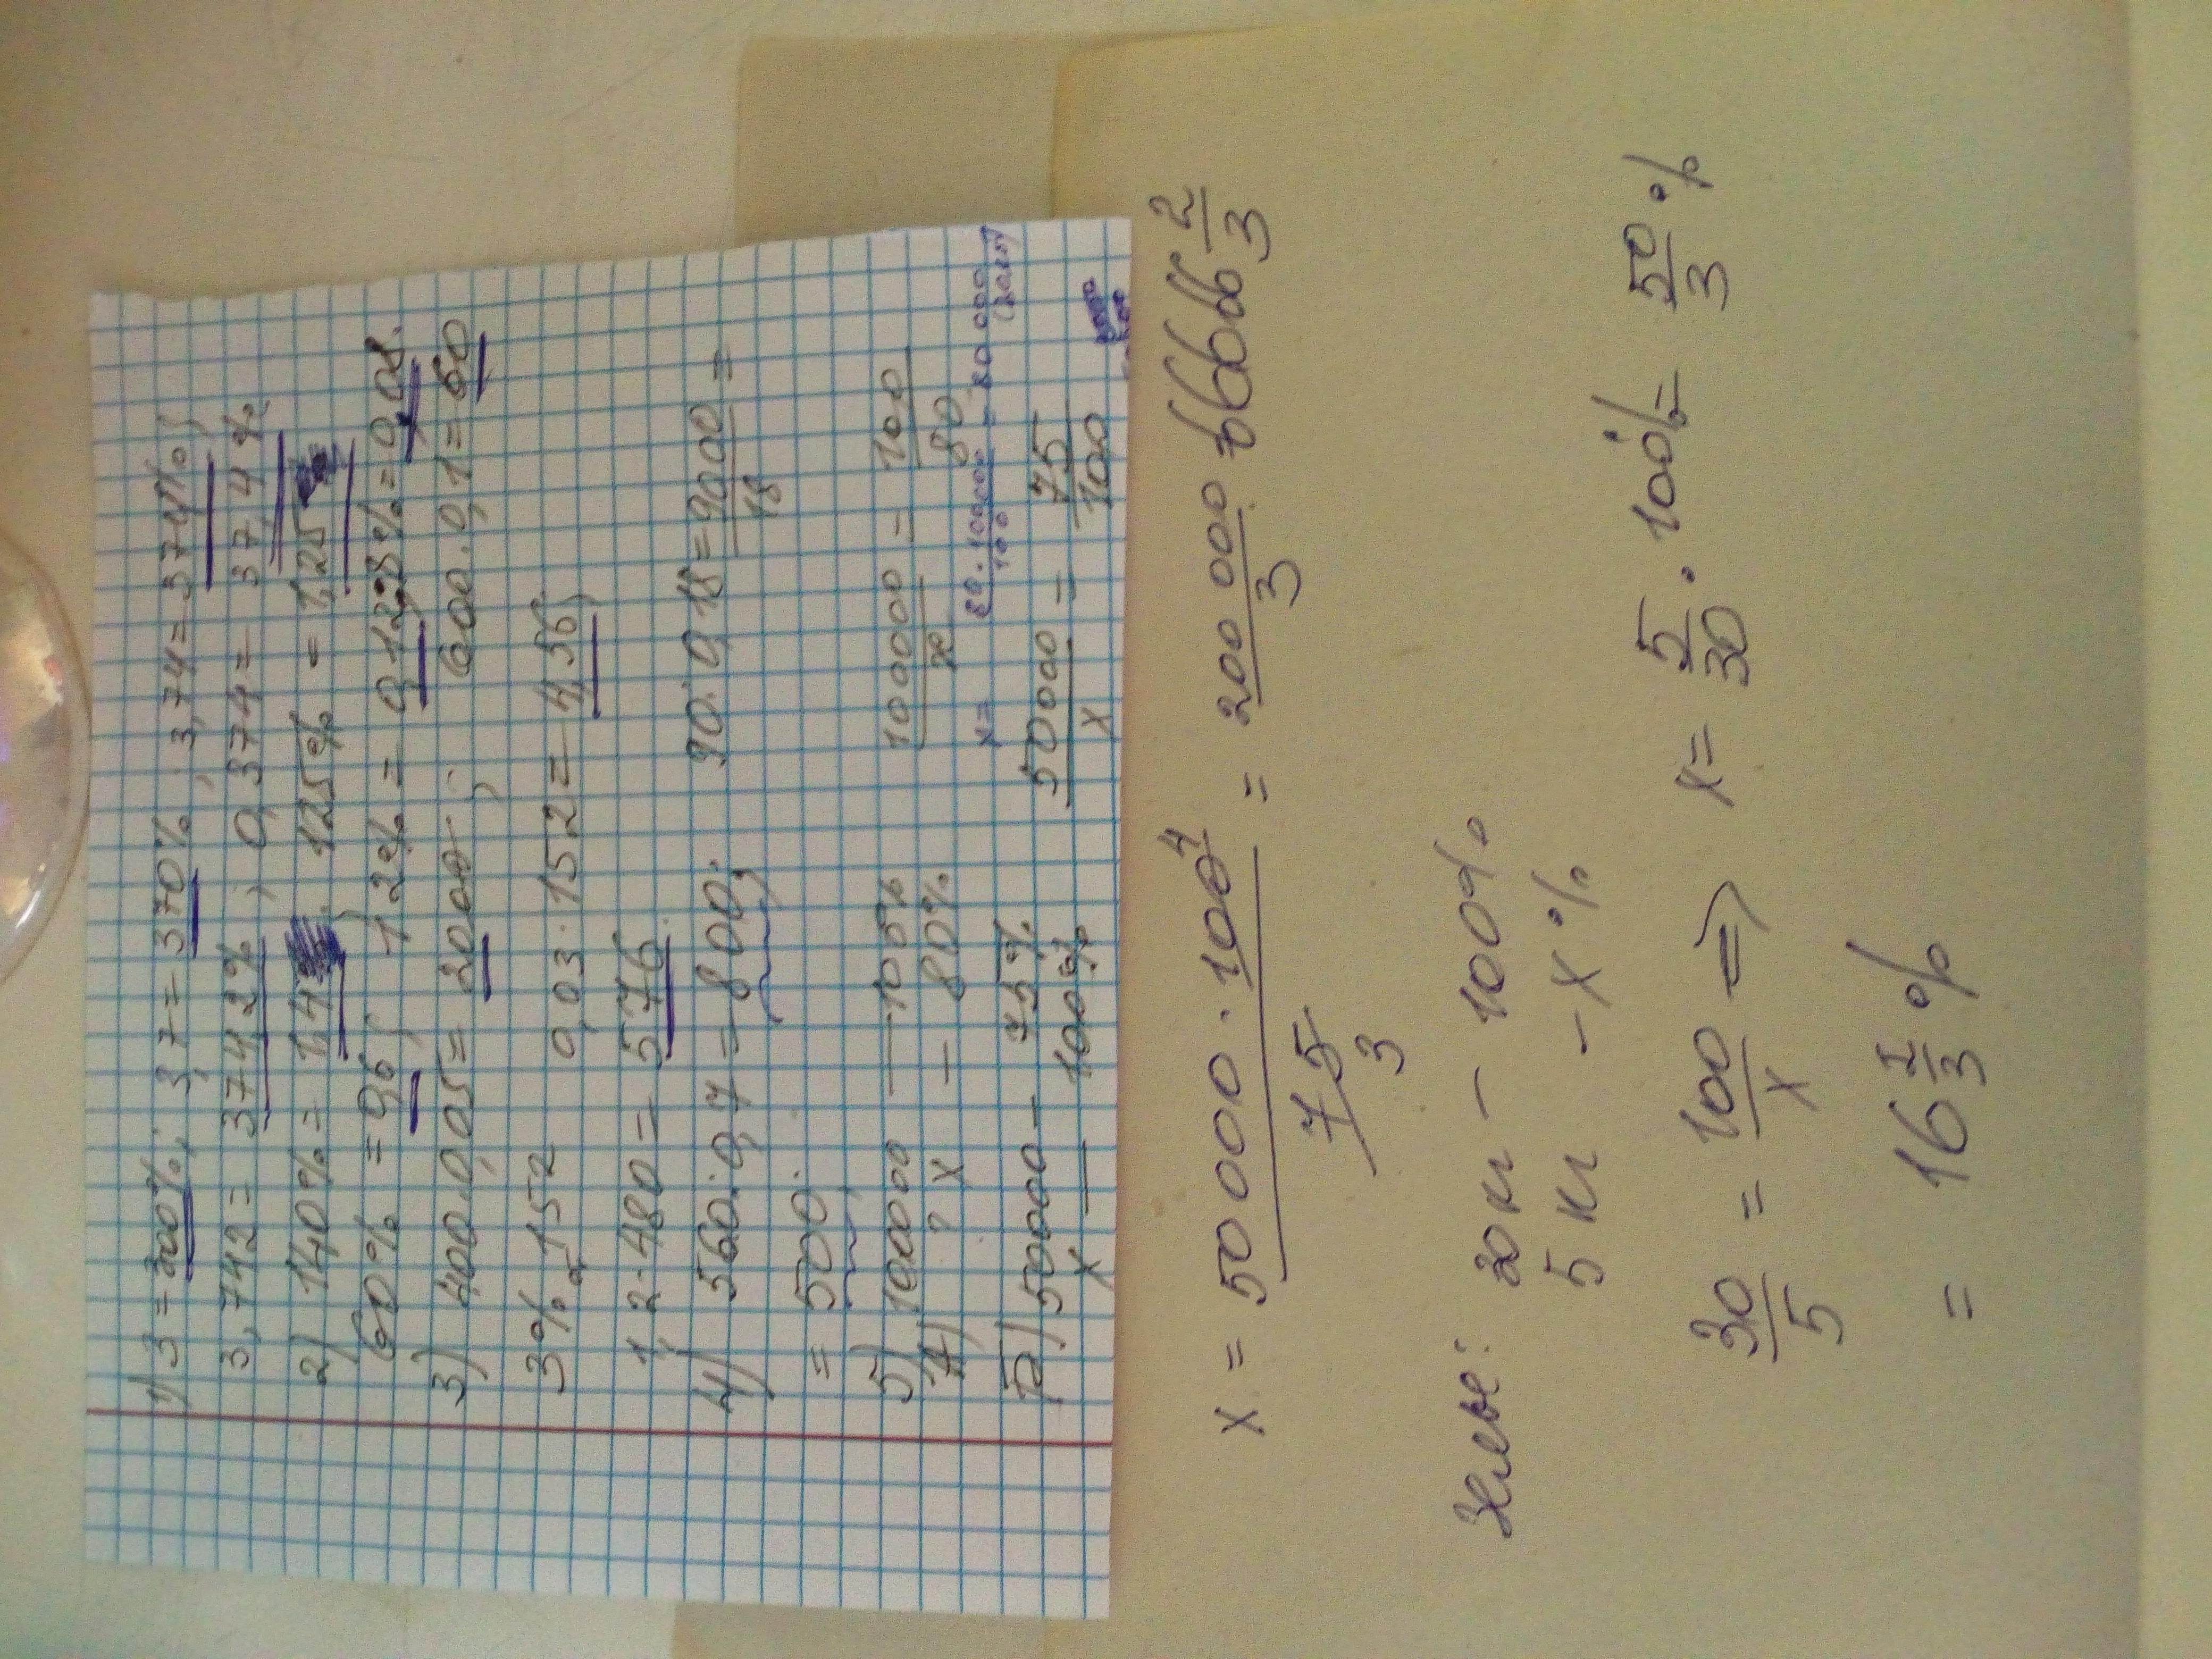 1) 3 = 300%; 3,7 = 370%; 3,74 = 374%;
3,742 = 374,2%; 0,374 = 37,4%
2) 140% = 1,4; 125% = 1,25
60% = 0,6; 12% = 0,12; 8% = 0,08.
3) 400:0,05 = 2000; 600.0,1 = 60
3% 152 0,03·152 = 4,56;
1,2·480 = 576.
4) 560:0,7 = 800; 90:0,18 = 9000/18 =
= 500;
5) 100000 — 100% 100000/x = 100/80
А) ? x — 80% x = 80·100000/100 = 80 000
Б) 50000 — 75% 50000/x = 75/100
x — 100%
x = 50 000 · 100 4 / 75 3 = 200 000/3 = 66666 2/3
30 кг — 100%
5 кг — x%
30/5 = 100/x ⇒ x = 5/30 · 100% = 50/3 %
= 16 1/3 %